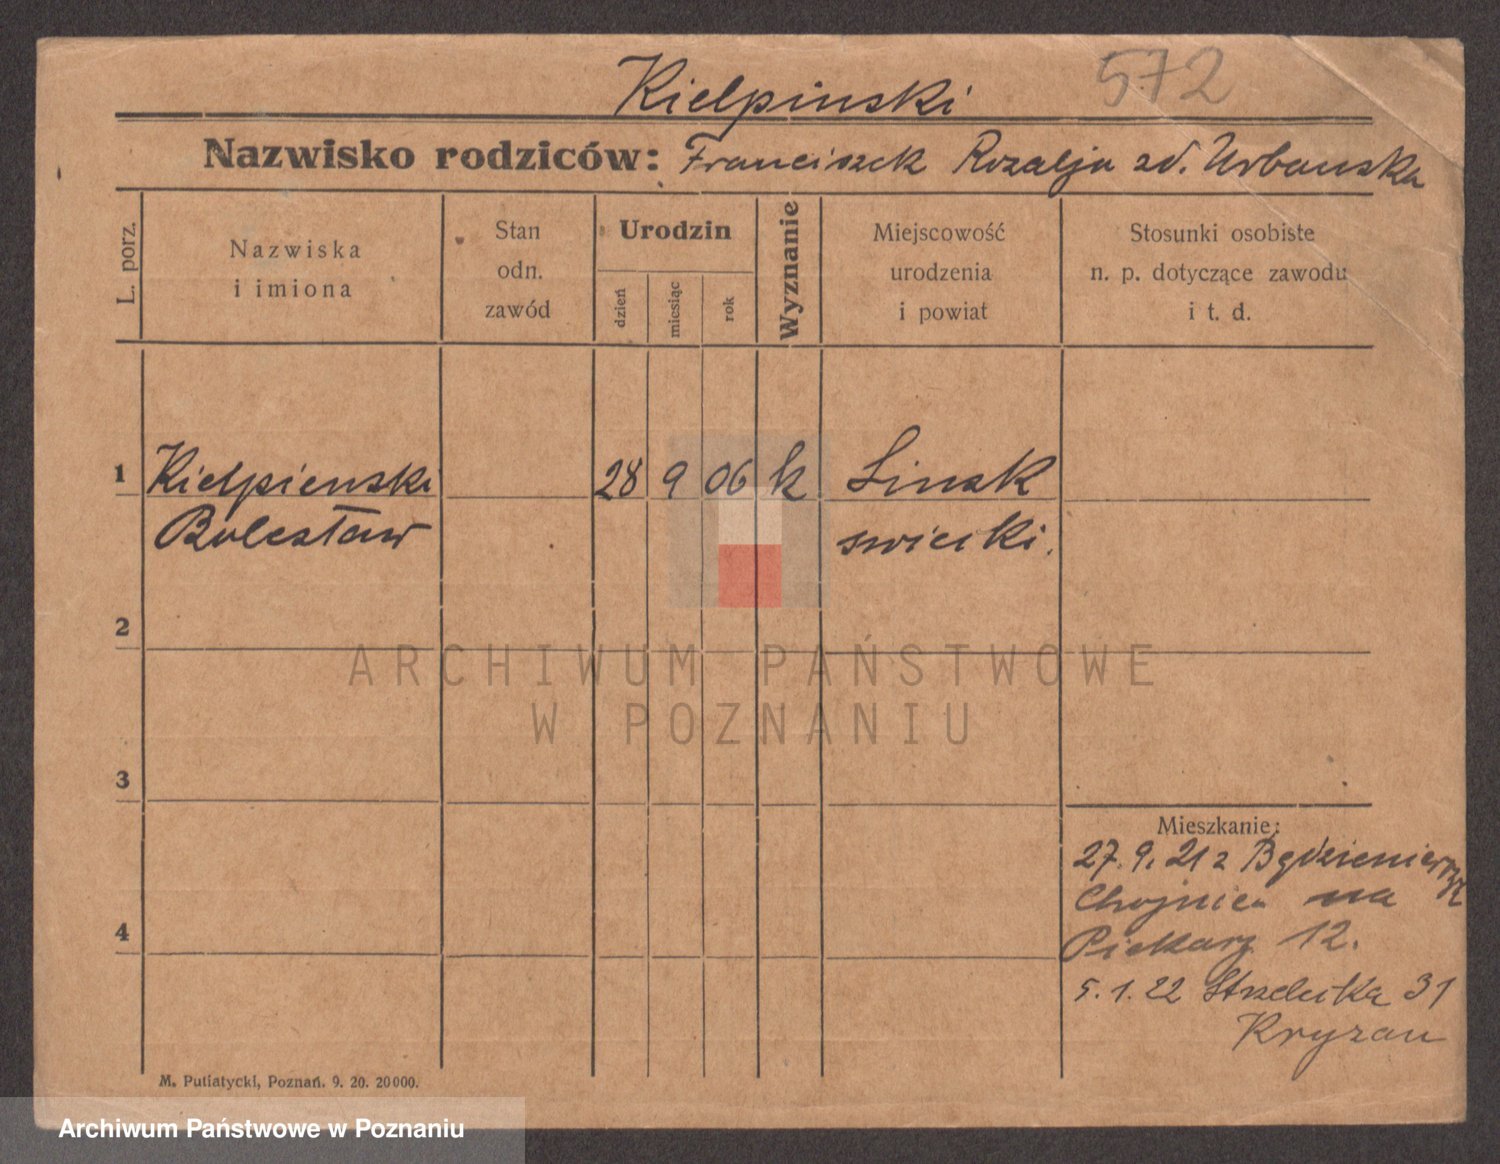 Kielpinski 572
Nazwisko rodziców: Franciszek Rozalja zd. Urbanska
L. porz.
Nazwiska
i imiona
Stan
odn.
zawód
Urodzin
dzień
miesiąc
rok
Wyznanie
Miejscowość
urodzenia
i powiat
Stosunki osobiste
n. p. dotyczące zawodu
i t. d.
1 Kielpienski 28 9 06 k Linsk
Bolesław swiecki.
2
ARCHIWUM PAŃSTWOWE
W POZNANIU
3
Mieszkanie:
27. 9. 21 z
Chojnice na
4
Piekary 12.
5. 1. 22 Strzelecka 31
Kryzan
M. Putiatycki, Poznań. 9. 20. 20000.
Archiwum Państwowe w Poznaniu